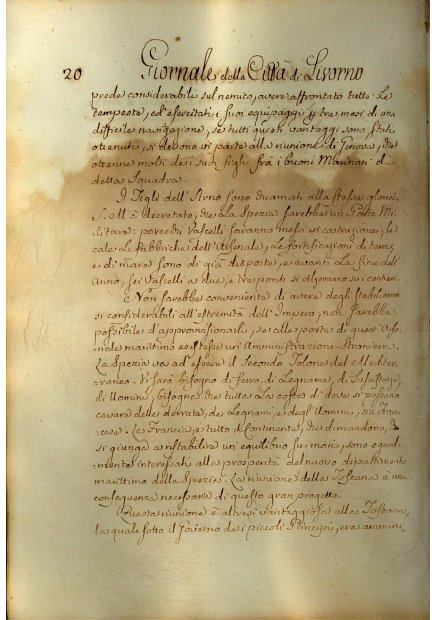 20 Giornale della Città di Livorno
prede considerabili sul nemico, avere affrontato tutte le
tempeste, ed esercitati i suoi equipaggi p tre mesi di una
difficile navigazione, se tutti questi vantaggi sono stati
ottenuti, si devono in parte alla riunione di Genova, che
ottenne molti de suoi figli frà i buoni Marinari di
detta Squadra.
I Figli dell' Arno sono chiamati alla stessa gloria.
S. M. à decretato, che La Spezia sarebbe un Porto Mi-
litare: parecchi Vascelli saranno messi in costruzione; le
cale, Le fabbriche dell' Arsenale, Le fortificazioni di terra,
e di mare sono di già disposte, e avanti La fine dell'
Anno, sei Vascelli a due, e tre ponti si alzeranno sui cantieri.
Non sarebbe conveniente di avere degli stabilimenti
si considerabili all' estremità dell' Impero, non sarebbe
possibile d' approvvisionarli, se alle porte di quest' Arse-
nale marittimo esistesse un' Amministrazione Straniera.
La Spezia và ad essere il Secondo Tolone del Mediter-
raneo. Vi sarà bisogno di ferro, di Legname, di Sussistenze,
di Uomini, bisogna che tutta La costa di dove si possono
cavare delle derrate, de Legnami, e degl' Uomini, sia Fran-
cese. La Francia, e tutto il Continente, che dimandono, che
si giunga a ristabilire un' equilibrio su i mari, sono equal-
mente interessati alla prosperità del nuovo dipartimento
marittimo della Spezia. La riunione della Toscana è una
conseguenza necessaria di questo gran progetto.
Questa riunione è altresì vantaggiosa alla Toscana,
la quale sotto il Governo de i piccoli Principi, era ammini-